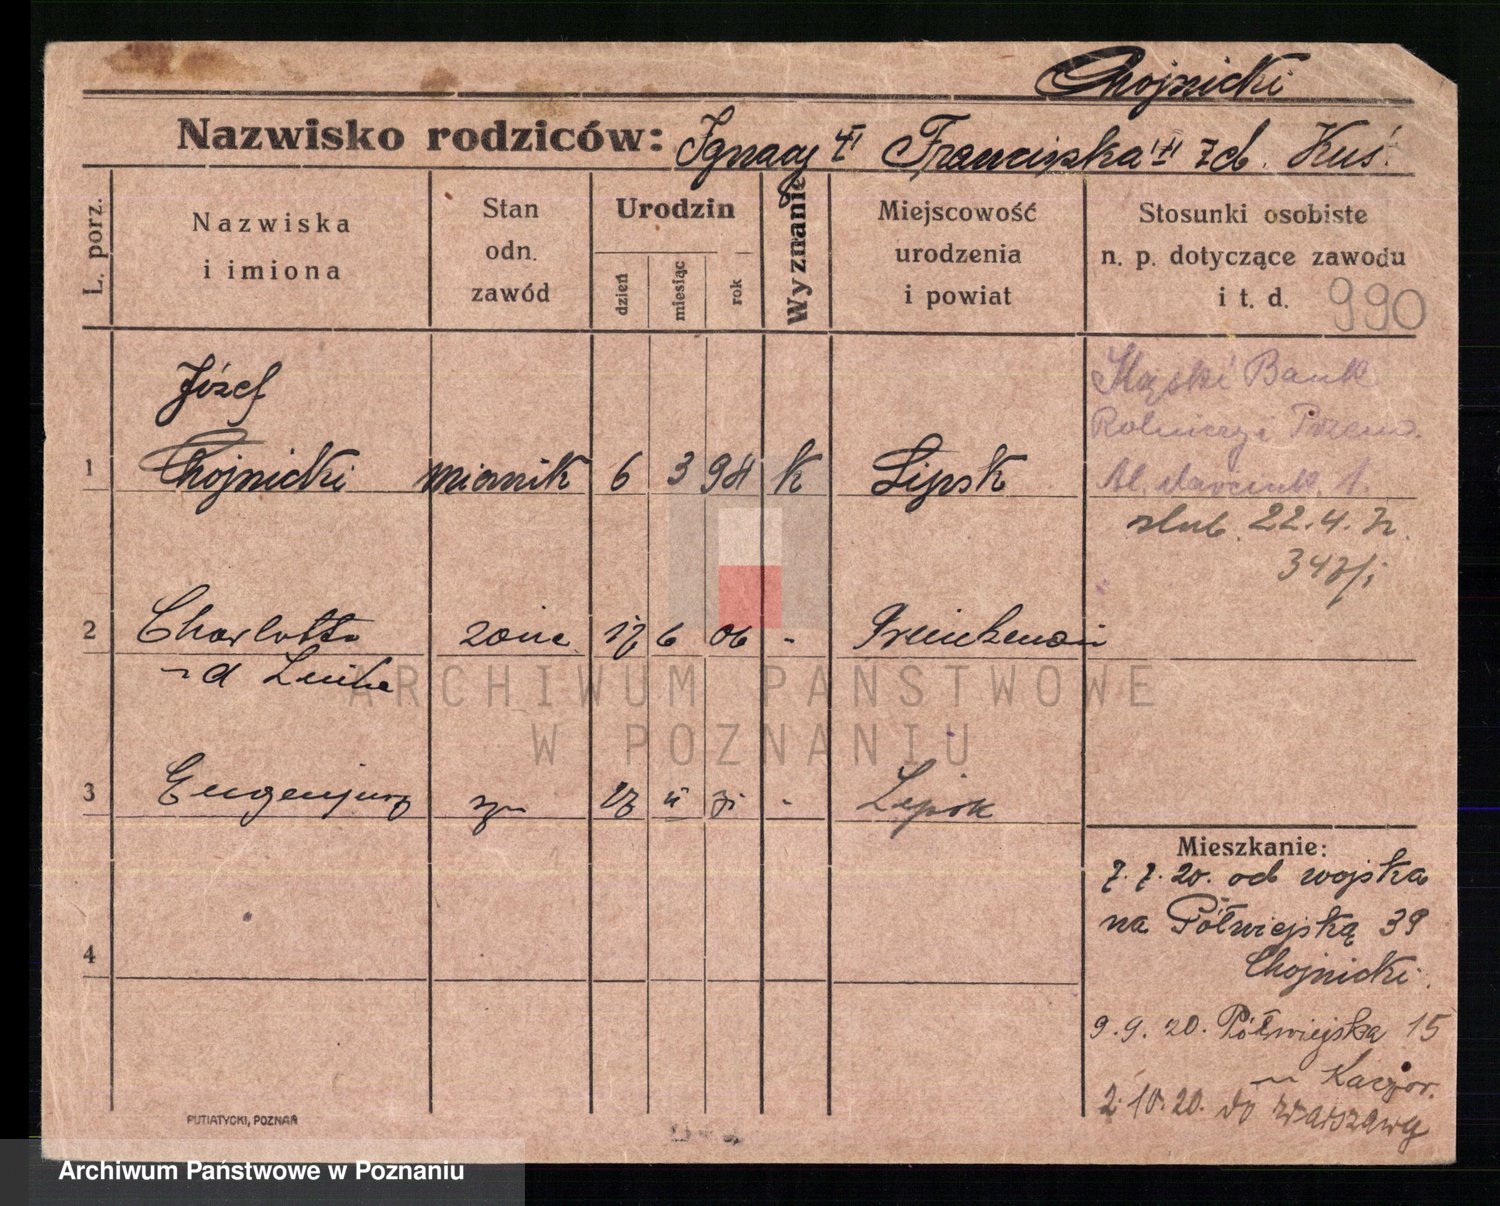 Chojnicki
Nazwisko rodziców: Ignacy Franciszka zd. Kuś.
L. porz.
Nazwiska
i imiona
Stan
odn.
zawód
Urodzin
dzień
miesiąc
rok
Wyznanie
Miejscowość
urodzenia
i powiat
Stosunki osobiste
n. p. dotyczące zawodu
i t. d. 990
Józef
1 Chojnicki miernik 6 3 94 k Lipsk
Bank
Rolniczy i Przem.
Al. Marcink. 1.
ślub 22.4.
2 Charlotta żona 6 06 -
3 Eugenjusz syn - Lipsk
4
Mieszkanie:
7.7.20. od wojska
na Półwiejską 39
Chojnicki.
9.9.20. Półwiejska 15
Kaczor.
2.10.20. do Warszawy
PUTIATYCKI, POZNAŃ
ARCHIWUM PAŃSTWOWE
W POZNANIU
Archiwum Państwowe w Poznaniu